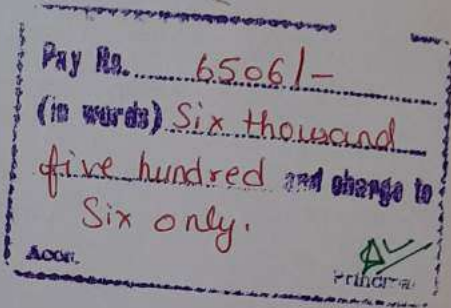 Pay Rs. 6506/-
(in words) Six thousand
five hundred and change to
Six only.
Acctt.
Principal